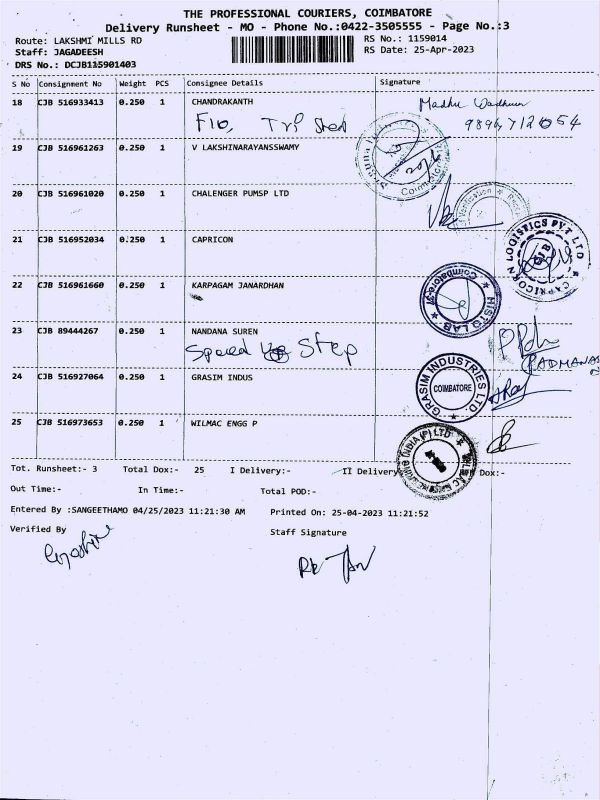 THE PROFESSIONAL COURIERS, COIMBATORE
Delivery Runsheet - MO - Phone No.:0422-3505555 - Page No.:3
Route: LAKSHMI MILLS RD RS No.: 1159014
Staff: JAGADEESH RS Date: 25-Apr-2023
DRS No.: DCJB115901403
S No Consignment No Weight PCS Consignee Details Signature
18 CJB 516933413 0.250 1 CHANDRAKANTH
Madhu
F10,
19 CJB 516961263 0.250 1 V LAKSHMINARAYANSSWAMY
20 CJB 516961020 0.250 1 CHALENGER PUMSP LTD
21 CJB 516952034 0.250 1 CAPRICON
CAPRICORN LOGISTICS PVT LTD
CJB
22 CJB 516961660 0.250 1 KARPAGAM JANARDHAN
HISTO LAB Coimbatore-37
23 CJB 89444267 0.250 1 NANDANA SUREN
Speed Step
24 CJB 516927064 0.250 1 GRASIM INDUS
GRASIM INDUSTRIES LTD
COIMBATORE
25 CJB 516973653 0.250 1 WILMAC ENGG P
Tot. Runsheet:- 3 Total Dox:- 25 I Delivery:- II Delivery Dox:-
Out Time:- In Time:- Total POD:-
Entered By :SANGEETHAMO 04/25/2023 11:21:30 AM Printed On: 25-04-2023 11:21:52
Verified By Staff Signature